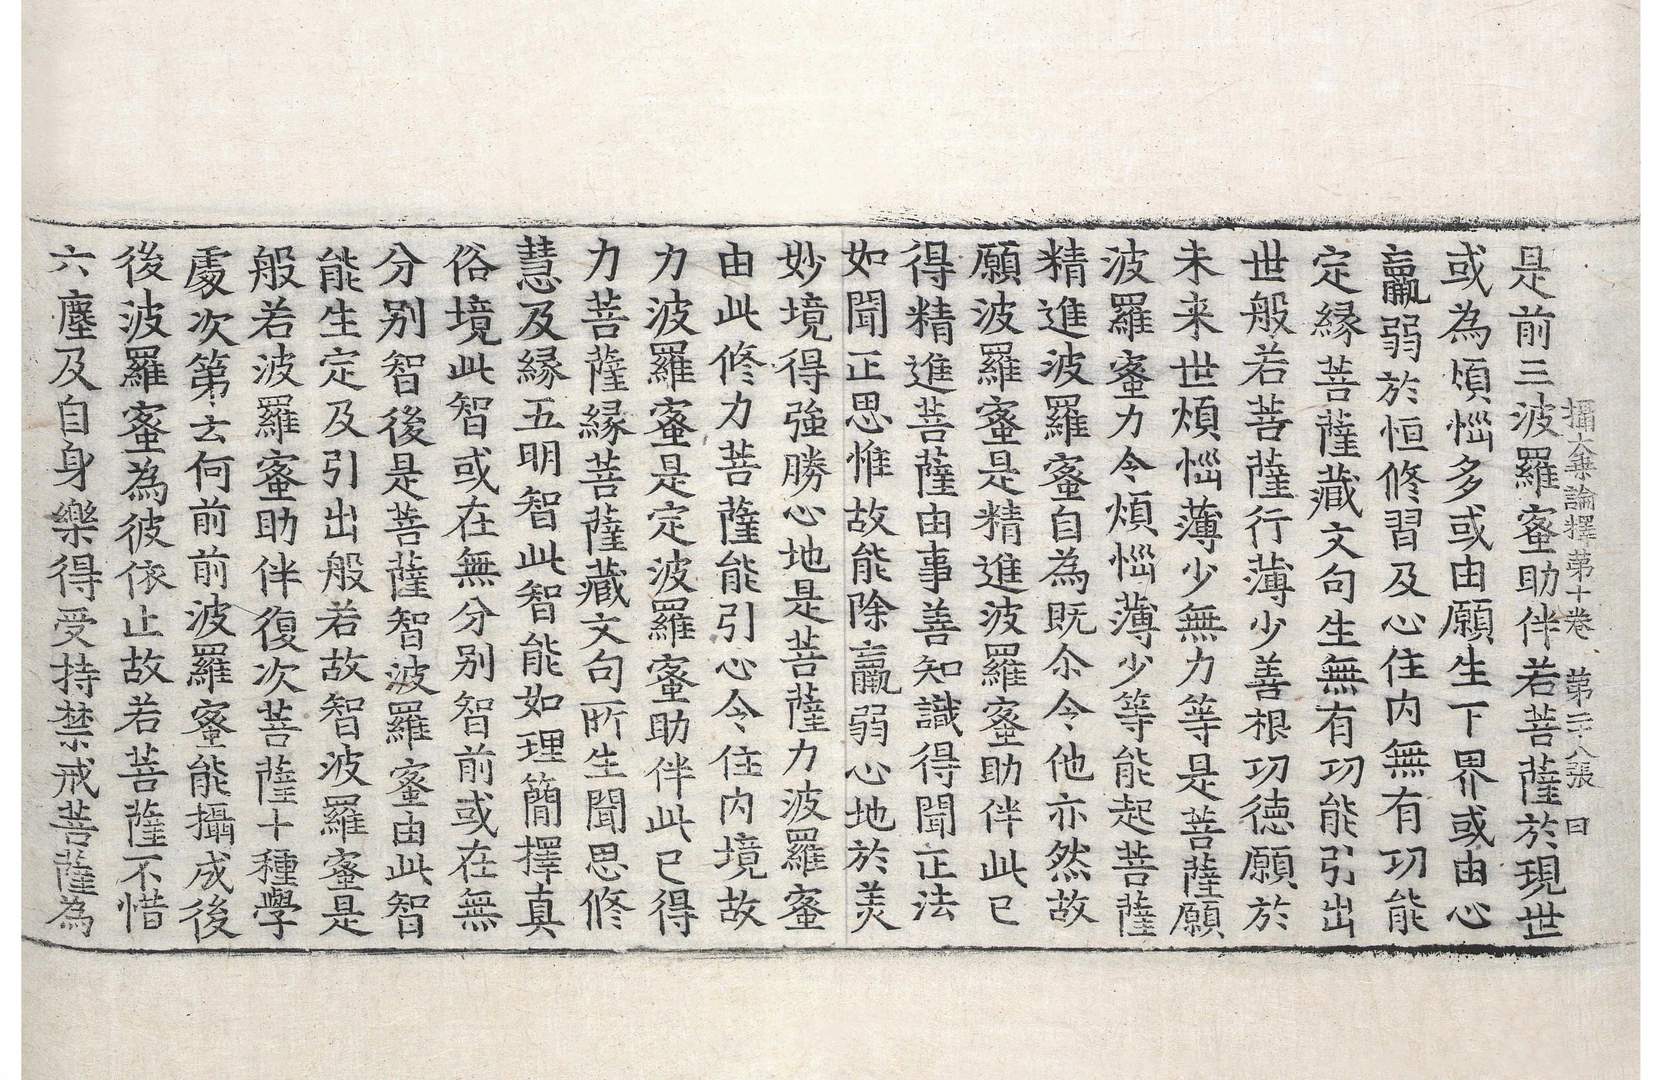 攝大乘論釋第十卷 第二十八張 曰
是前三波羅蜜助伴若菩薩於現世
或為煩惱多或由願生下界或由心
羸弱於恒修習及心住內無有功能
定縁菩薩藏文句生無有功能引出
世般若菩薩行薄少善根功德願於
未来世煩惱薄少無力等是菩薩願
波羅蜜力令煩惱薄少等能起菩薩
精進波羅蜜自為既尒令他亦然故
願波羅蜜是精進波羅蜜助伴此已
得精進菩薩由事善知識得聞正法
如聞正思惟故能除羸弱心地於美
妙境得強勝心地是菩薩力波羅蜜
由此修力菩薩能引心令住內境故
力波羅蜜是定波羅蜜助伴此已得
力菩薩縁菩薩藏文句所生聞思修
慧及縁五明智此智能如理簡擇真
俗境此智或在無分別智前或在無
分別智後是菩薩智波羅蜜由此智
能生定及引出般若故智波羅蜜是
般若波羅蜜助伴復次菩薩十種學
處次第云何前前波羅蜜能攝成後
後波羅蜜為彼依止故若菩薩不惜
六塵及自身樂得受持禁戒菩薩為